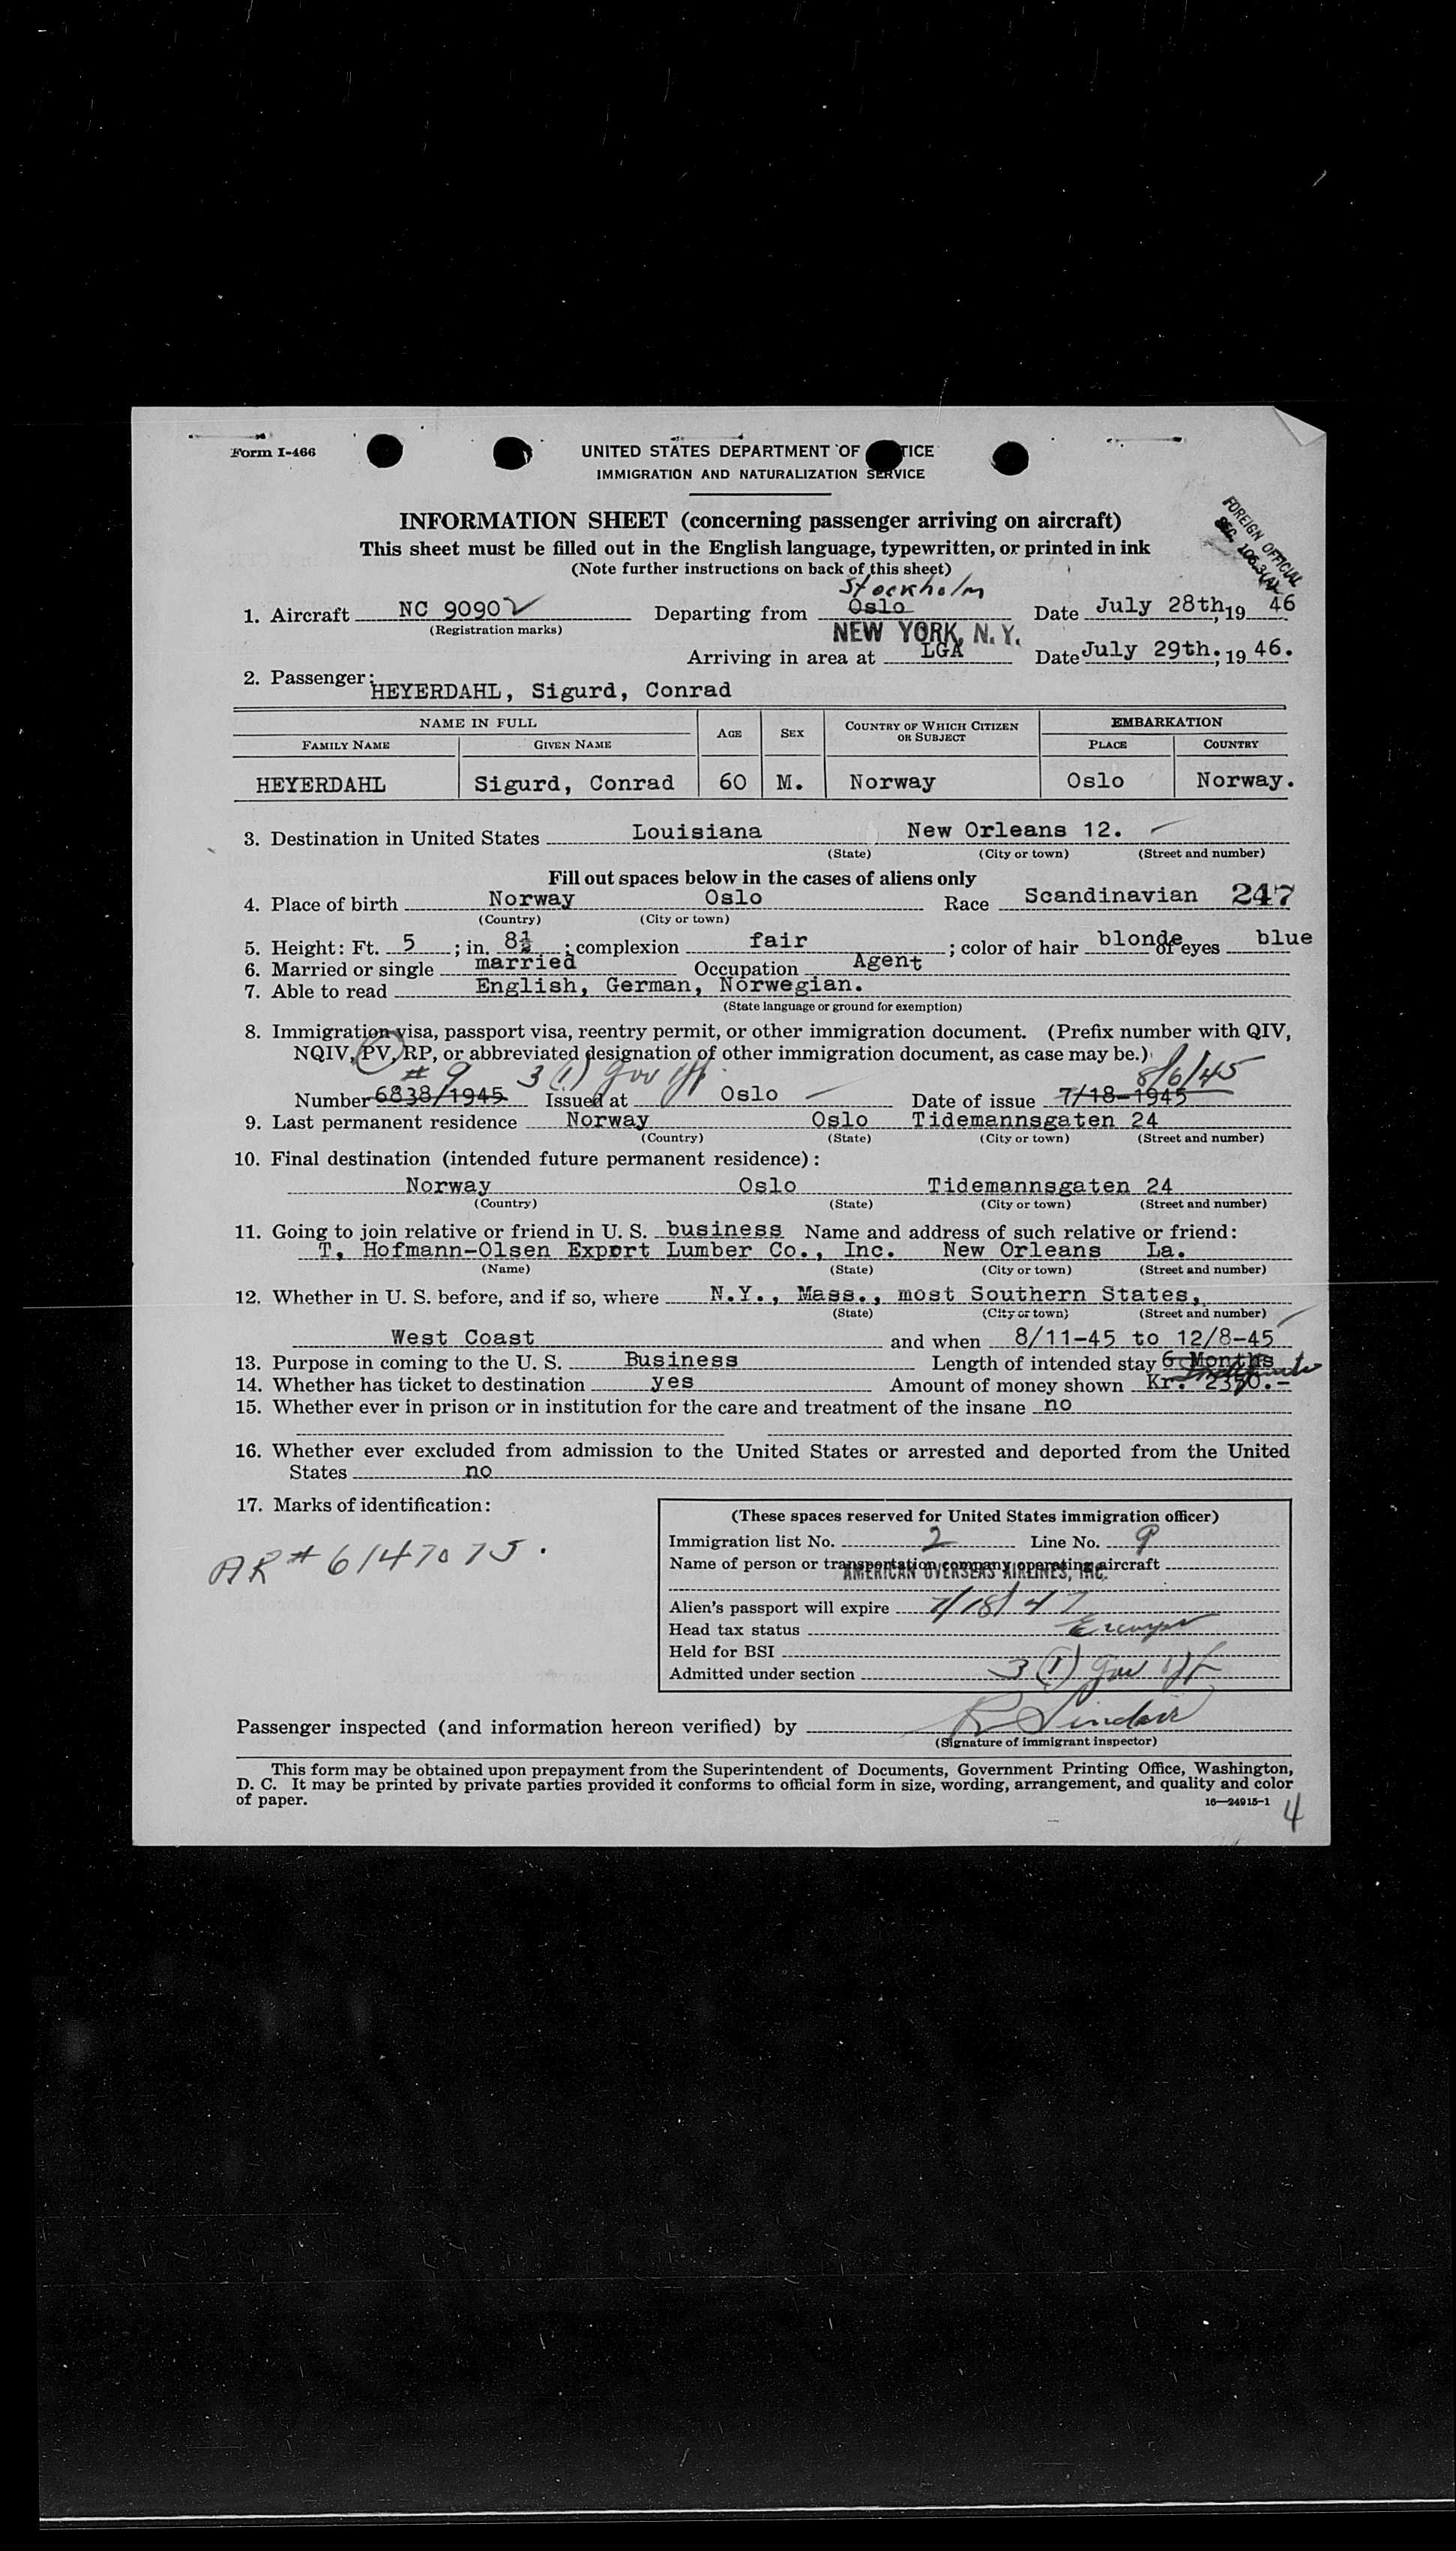 Form I-466
UNITED STATES DEPARTMENT OF TICE
IMMIGRATION AND NATURALIZATION SERVICE
INFORMATION SHEET (concerning passenger arriving on aircraft)
This sheet must be filled out in the English language, typewritten, or printed in ink
(Note further instructions on back of this sheet)
FOREIGN OFFICIAL
SEC. 106.3(A)
Stockholm
1. Aircraft NC 90902 Departing from Oslo Date July 28th, 19 46
(Registration marks)
NEW YORK, N.Y.
Arriving in area at LGA Date July 29th., 19 46.
2. Passenger: HEYERDAHL, Sigurd, Conrad
NAME IN FULL AGE SEX COUNTRY OF WHICH CITIZEN OR SUBJECT EMBARKATION
FAMILY NAME GIVEN NAME PLACE COUNTRY
HEYERDAHL Sigurd, Conrad 60 M. Norway Oslo Norway.
3. Destination in United States Louisiana New Orleans 12.
(State) (City or town) (Street and number)
Fill out spaces below in the cases of aliens only
4. Place of birth Norway Oslo Race Scandinavian 247
(Country) (City or town)
5. Height: Ft. 5 ; in. 8½ ; complexion fair ; color of hair blonde of eyes blue
6. Married or single married Occupation Agent
7. Able to read English, German, Norwegian.
(State language or ground for exemption)
8. Immigration visa, passport visa, reentry permit, or other immigration document. (Prefix number with QIV,
NQIV, PV, RP, or abbreviated designation of other immigration document, as case may be.)
# 9 3 (1) gov off 8/6/45
Number 6838/1945 Issued at Oslo Date of issue 7/18-1945
9. Last permanent residence Norway Oslo Tidemannsgaten 24
(Country) (State) (City or town) (Street and number)
10. Final destination (intended future permanent residence):
Norway Oslo Tidemannsgaten 24
(Country) (State) (City or town) (Street and number)
11. Going to join relative or friend in U. S. business Name and address of such relative or friend:
T. Hofmann-Olsen Export Lumber Co., Inc. New Orleans La.
(Name) (State) (City or town) (Street and number)
12. Whether in U. S. before, and if so, where N.Y., Mass., most Southern States,
(State) (City or town) (Street and number)
West Coast and when 8/11-45 to 12/8-45
13. Purpose in coming to the U. S. Business Length of intended stay 6 Months Indefinite
14. Whether has ticket to destination yes Amount of money shown Kr. 2350.-
15. Whether ever in prison or in institution for the care and treatment of the insane no
16. Whether ever excluded from admission to the United States or arrested and deported from the United
States no
17. Marks of identification:
AR # 6147075.
(These spaces reserved for United States immigration officer)
Immigration list No. 2 Line No. 9
Name of person or transportation company operating aircraft
AMERICAN OVERSEAS AIRLINES, INC.
Alien's passport will expire 7/18/47
Head tax status Exempt
Held for BSI
Admitted under section 3 (1) gov off
Passenger inspected (and information hereon verified) by R Sinclair
(Signature of immigrant inspector)
This form may be obtained upon prepayment from the Superintendent of Documents, Government Printing Office, Washington,
D. C. It may be printed by private parties provided it conforms to official form in size, wording, arrangement, and quality and color
of paper.
16—24915-1
4